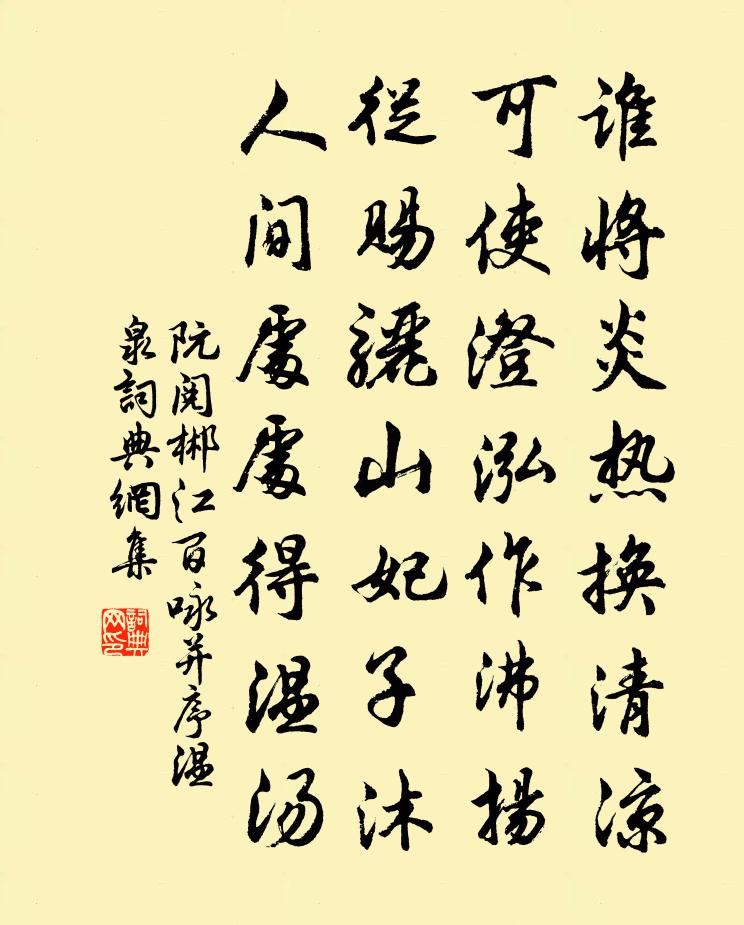 谁将炎热换清凉
可使澄泓作沸扬
从赐骊山妃子沐
人间处处得温汤
阮阅郴江百咏并序温
泉词典网集
詞典
网印